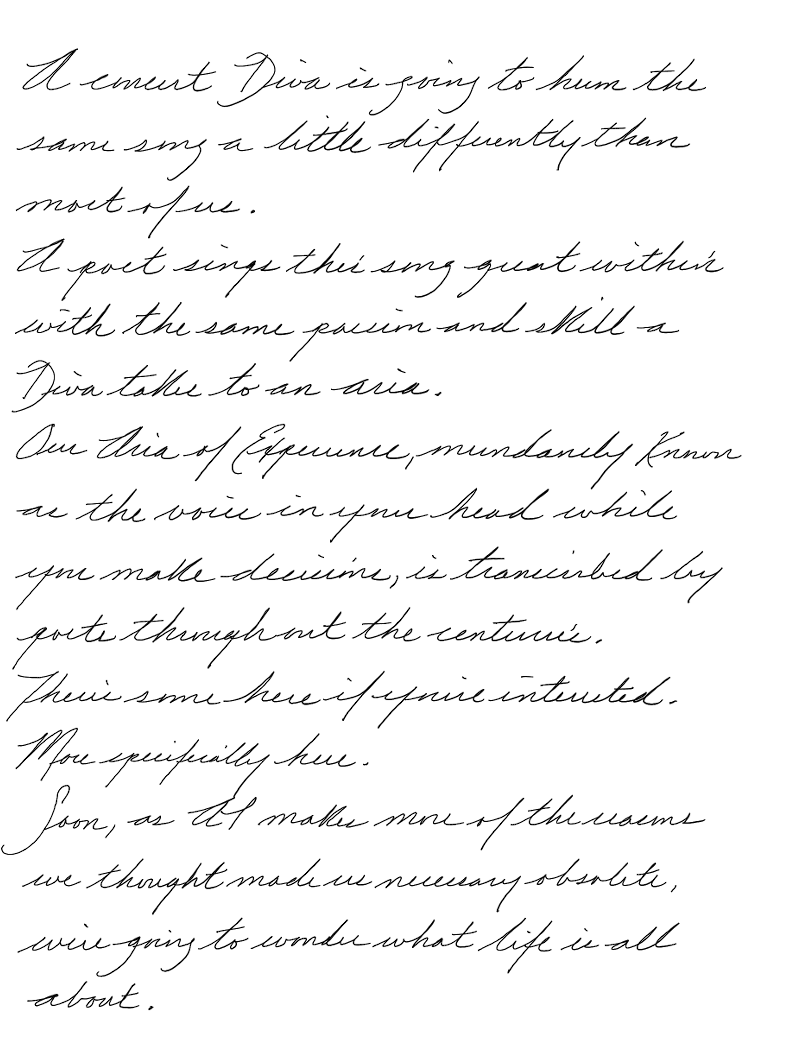 A concert Diva is going to hum the
same song a little differently than
most of us.
A poet sings their song great within
with the same passion and skill a
Diva takes to an aria.
Our Aria of Experience, mundanely Known
as the voice in your head while
you make decisions, is transcribed by
poets throughout the centuries.
There's some here if you're interested.
More specifically here.
Soon, as AI makes more of the reasons
we thought made us necessary obsolete,
we're going to wonder what life is all
about.